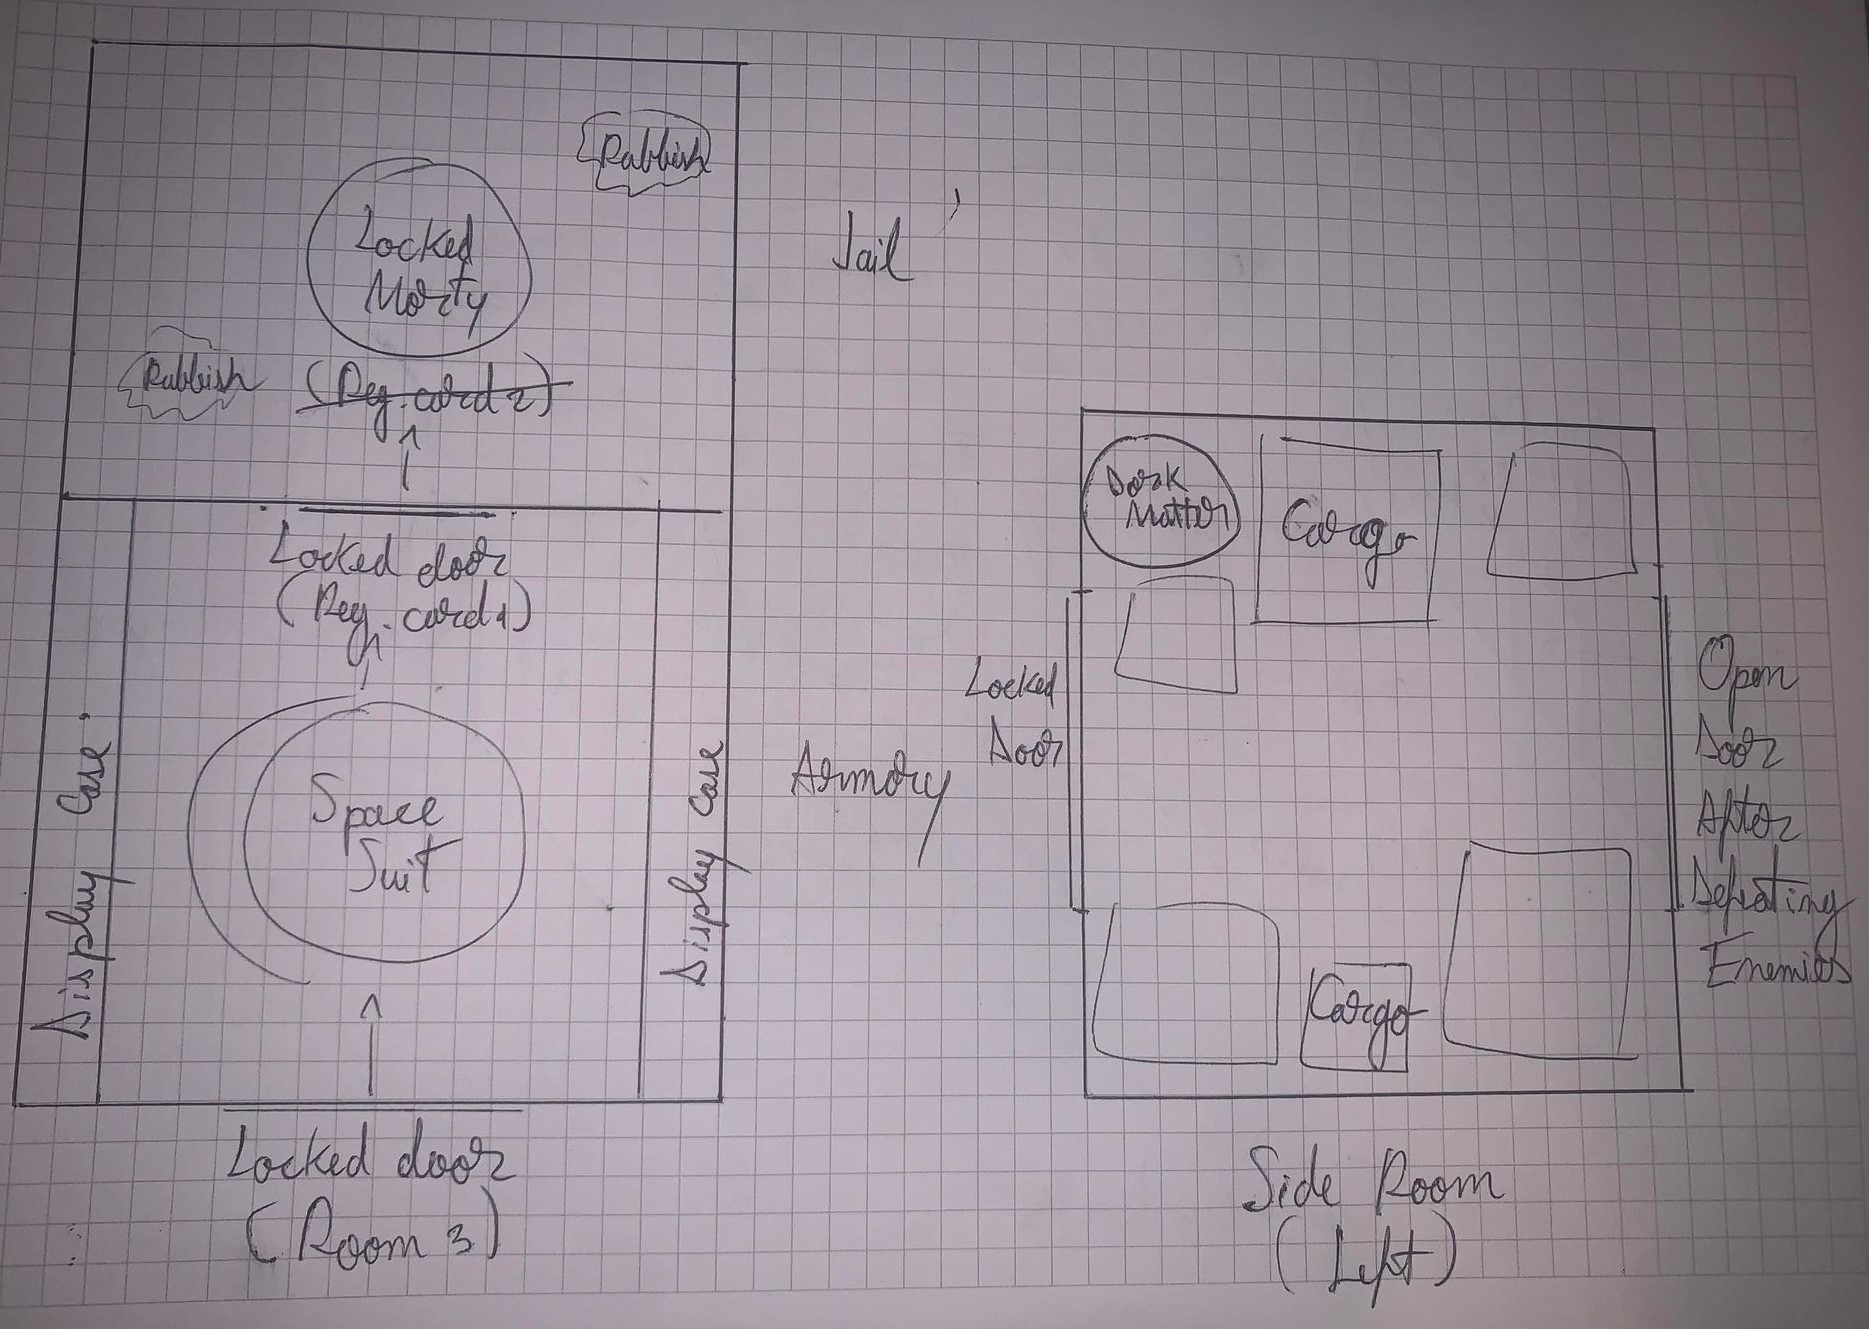 Rubbish
Locked
Morty
Rubbish
(Reg. card 2)
Jail
Locked door
(Reg. card 1)
Display Case
Space
Suit
Display Case
Armory
Locked door
(Room 3)
Dark
Matter
Cargo
Locked
Door
Open
Door
After
Defeating
Enemies
Cargo
Side Room
(Left)